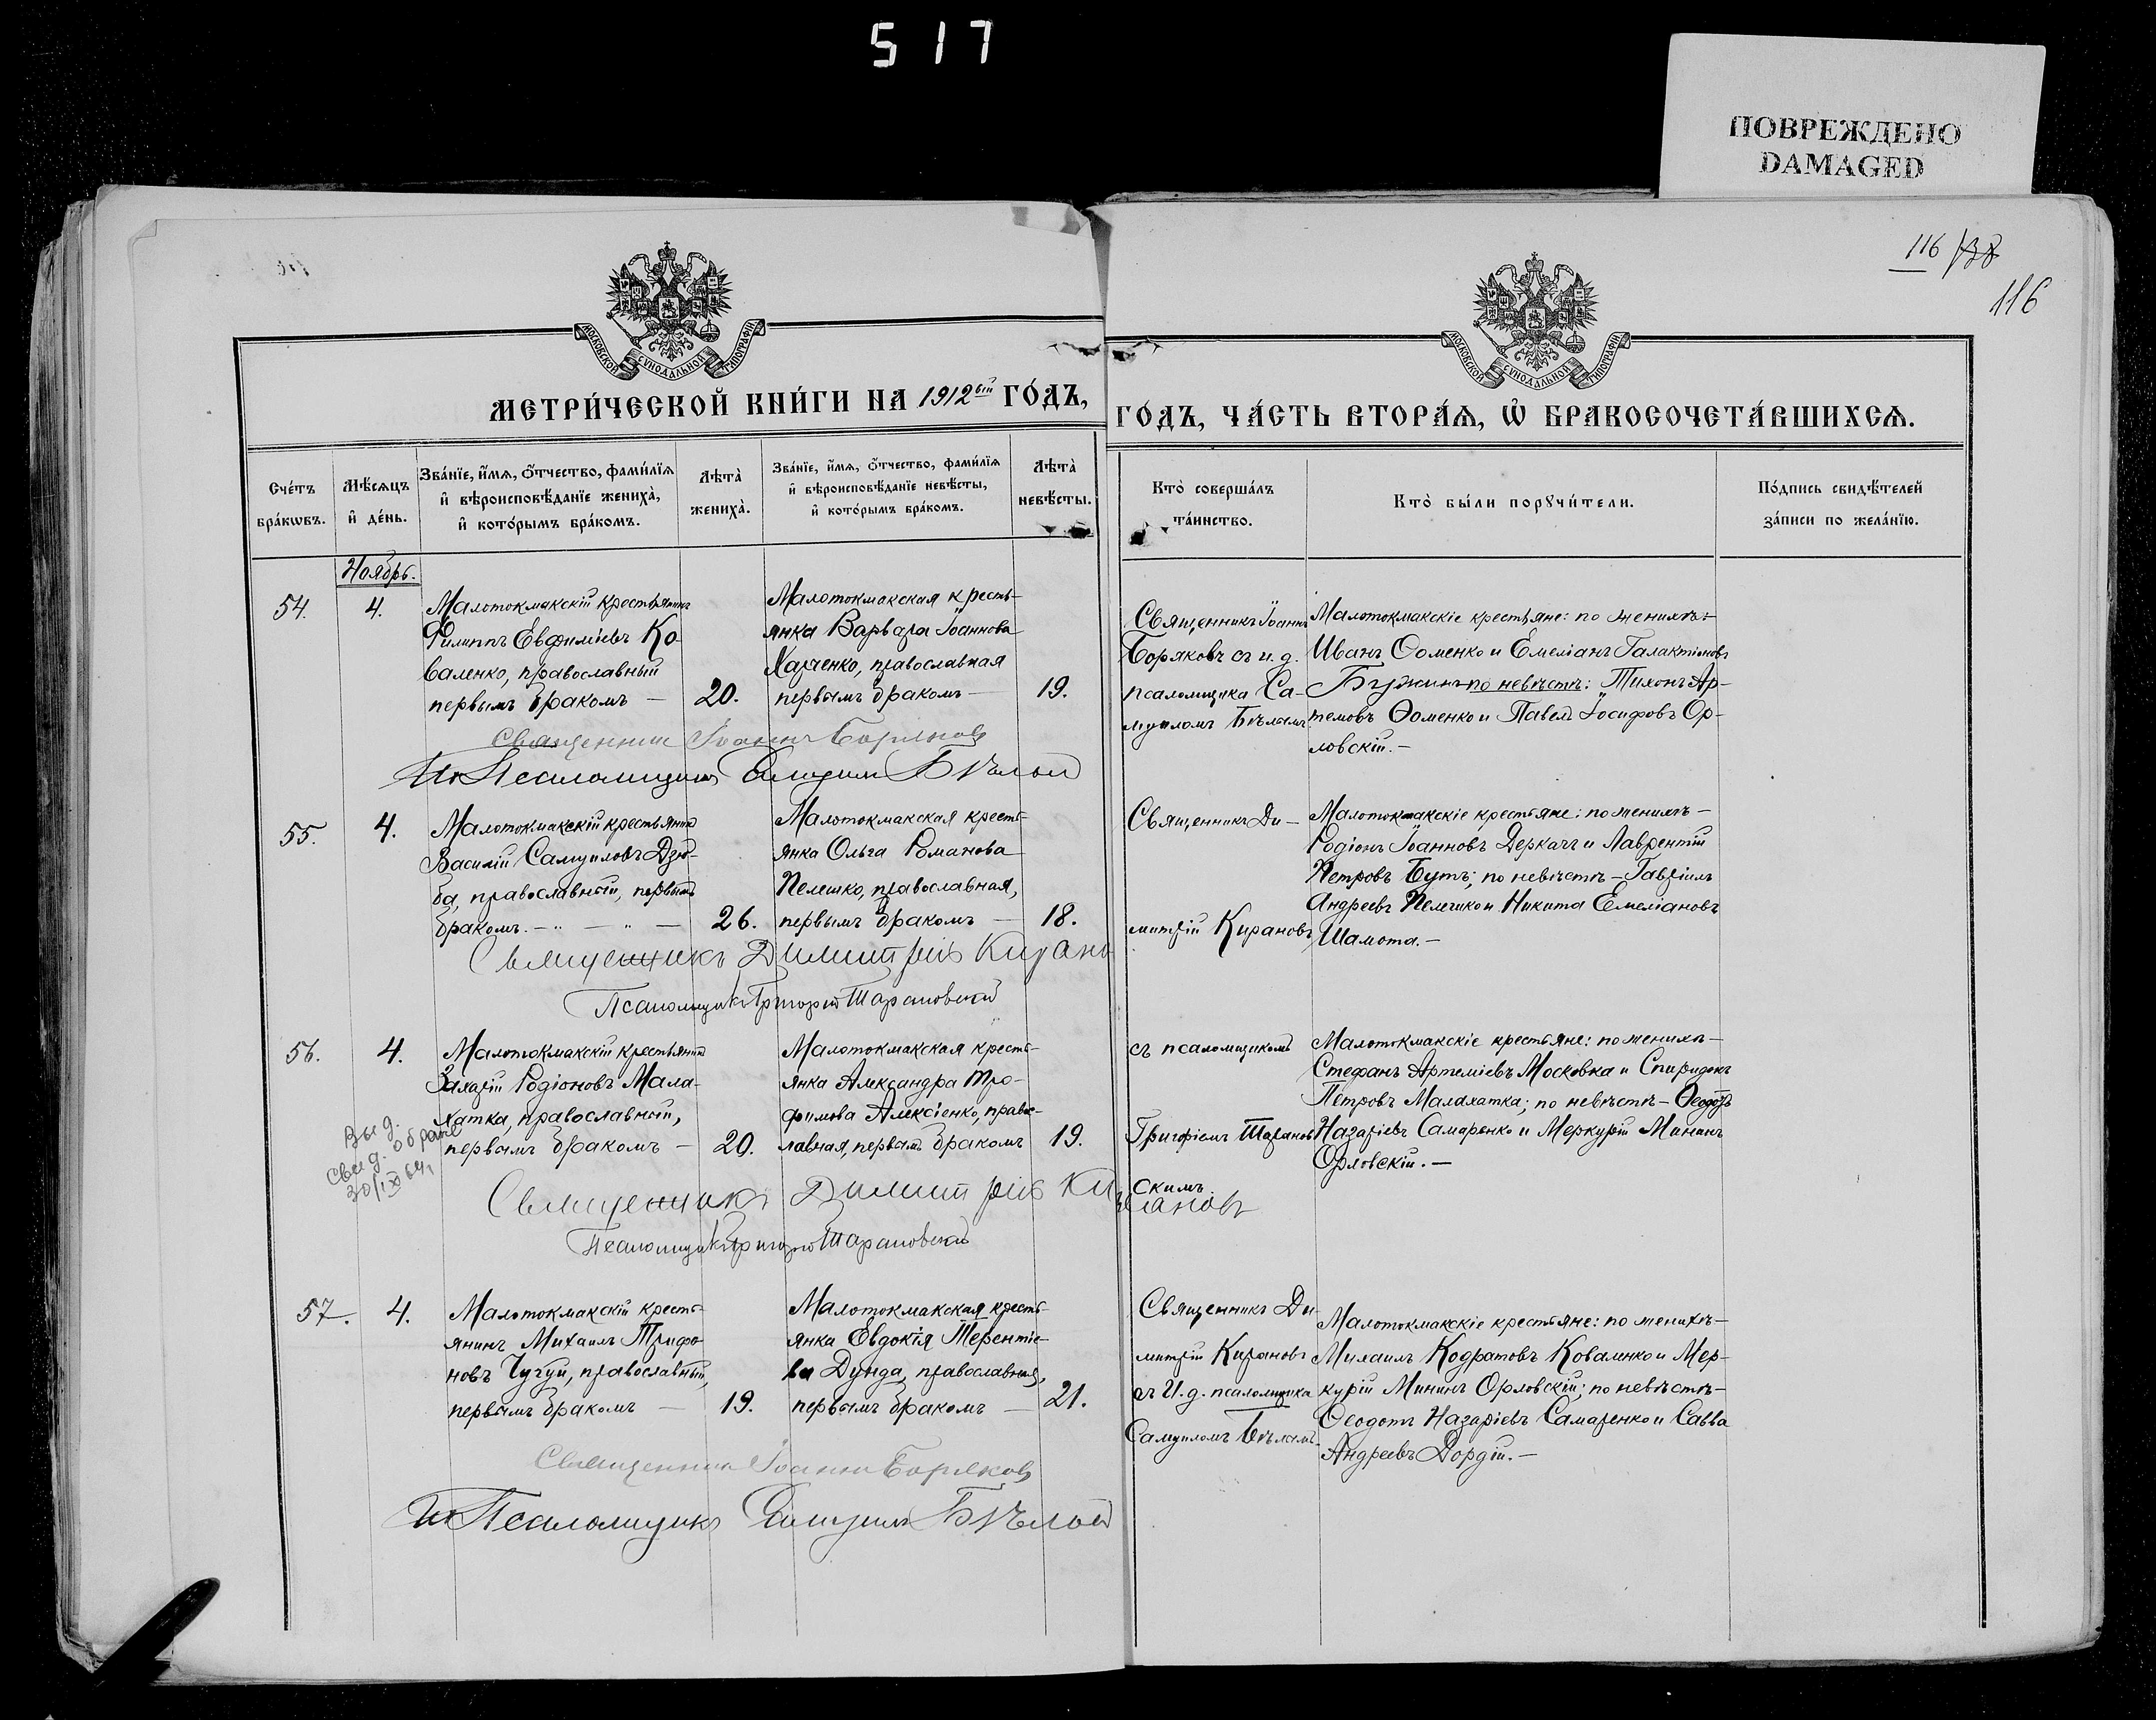 517
ПОВРЕЖДЕНО
DAMAGED
116
116
МОСКОВСКОЙ СѴНОДАЛЬНОЙ ТИПОГРАФІИ
МОСКОВСКОЙ СѴНОДАЛЬНОЙ ТИПОГРАФІИ
МЕТРИ́ЧЕСКОЙ КНИ́ГИ НА 1912ый ГО́ДЪ,
ГО́ДЪ, ЧА́СТЬ ВТОРА́Ѧ, Ѽ БРАКОСОЧЕТА́ВШИХСѦ.
Сче́тъ
бра́кѡвъ.
Мѣ́сѧцъ
и҆ де́нь.
Зва́нїе, и҆́мѧ, ѻ҆́тчество, фами́лїѧ
и҆ вѣроисповѣ́данїе жениха̀,
и҆ кото́рымъ бра́комъ.
Лѣта̀
жениха̀.
Зва́нїе, и҆́мѧ, ѻ҆́тчество, фами́лїѧ
и҆ вѣроисповѣ́данїе невѣ́сты,
и҆ кото́рымъ бра́комъ.
Лѣта̀
невѣ́сты.
Кто̀ соверша́лъ
та́инство.
Кто̀ бы́ли порꙋчи́тели.
По́дпись свидѣ́телей
за́писи по жела́нїю.
Ноябрь.
54.
4.
Малотокмакскій крестьянинъ
Филиппъ Евфиміевъ Ко-
валенко, православный
первымъ бракомъ —
20.
Малотокмакская кресть-
янка Варвара Іоаннова
Харченко, православная
первымъ бракомъ —
19.
Священникъ Іоаннъ
Боряковъ съ и. д.
псаломщика Са-
муиломъ Бѣлымъ
Малотокмакскіе крестьяне: по женихѣ:
Иванъ Ѳоменко и Емеліанъ Галактіоновъ
Бужинъ по невѣстѣ: Тихонъ Ар-
темовъ Ѳоменко и Павелъ Іосифовъ Ор-
ловскій. —
Священникъ Іоаннъ Боряковъ
И. д. Псаломщика Самуилъ Бѣлый
55.
4.
Малотокмакскій крестьянинъ
Василій Самуиловъ Дзю-
ба, православный, первымъ
бракомъ. — " — " —
26.
Малотокмакская кресть-
янка Ольга Романова
Пелешко, православная,
первымъ бракомъ —
18.
Священникъ Ди-
митрій Кирановъ
Малотокмакскіе крестьяне: по женихѣ —
Родіонъ Іоанновъ Деркачъ и Лаврентій
Петровъ Бутъ; по невѣстѣ — Гавріилъ
Андреевъ Пелешко и Никита Емеліановъ
Шамота. —
Священникъ Димитрій Кирано
Псаломщикъ Григорій Тарановскій
56.
4.
Малотокмакскій крестьянинъ
Захарій Родіоновъ Мала-
хатка, православный,
первымъ бракомъ —
20.
Малотокмакская кресть-
янка Александра Тро-
фимова Алексіенко, правос-
лавная, первымъ бракомъ
19.
съ псаломщикомъ
Григоріемъ Таранов
скимъ
Малотокмакскіе крестьяне: по женихѣ —
Стефанъ Артеміевъ Московка и Спиридонъ
Петровъ Малахатка; по невѣстѣ — Ѳеодотъ
Назаріевъ Самаренко и Меркурій Мининъ
Орловскій. —
Выд.
свид. о браке
30/IX 64 г.
Священникъ Димитрій Кирановъ
Псаломщикъ Григорій Тарановскій
57.
4.
Малотокмакскій кресть-
янинъ Михаилъ Трифо-
новъ Чугуй, православный,
первымъ бракомъ —
19.
Малотокмакская кресть-
янка Евдокія Терентіе-
ва Дунда, православная,
первымъ бракомъ —
21.
Священникъ Ди-
митрій Кирановъ
съ И. д. псаломщика
Самуиломъ Бѣлымъ.
Малотокмакскіе крестьяне: по женихѣ —
Михаилъ Кодратовъ Коваленко и Мер-
курій Мининъ Орловскій; по невѣстѣ —
Ѳеодотъ Назаріевъ Самаренко и Савва
Андреевъ Дордій. —
Священникъ Іоаннъ Боряковъ
И. д. Псаломщика Самуилъ Бѣлый